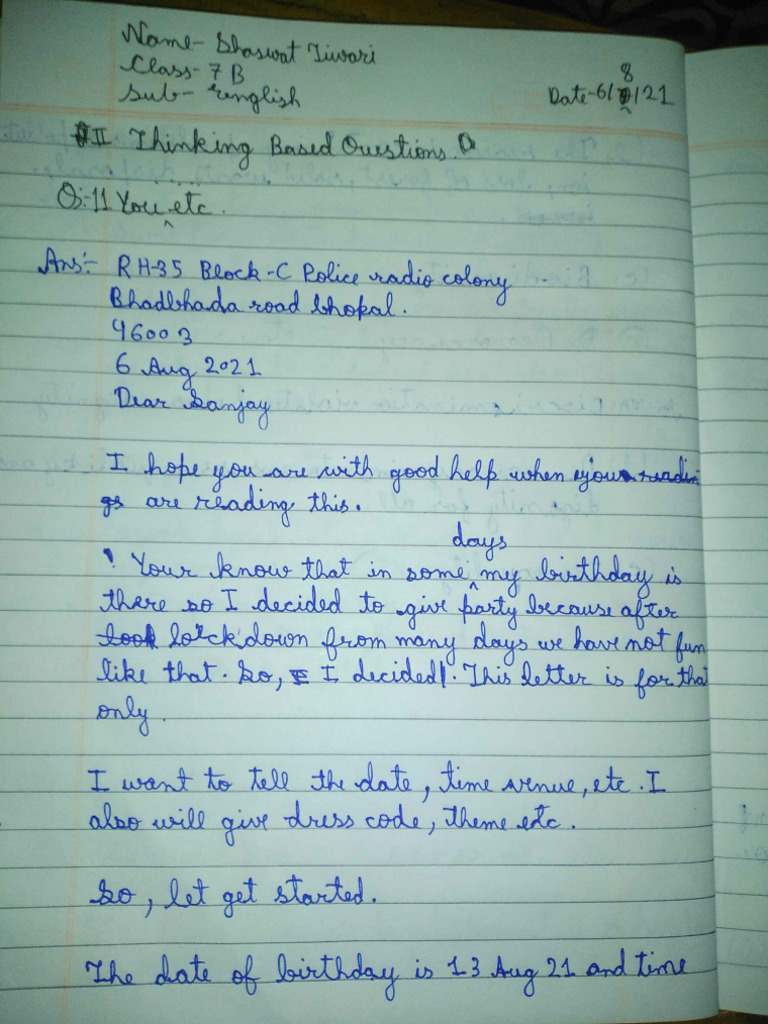 Name- Shaswat Tiwari
Class- 7 B
Sub- english
Date-6/8/21
II Thinking Based Questions.
Q:11 You etc.
Ans:- RH-35 Block-C Police radio colony
Bhadbhada road bhopal.
46003
6 Aug 2021
Dear Sanjay
I hope you are with good help when you
are reading this.
Your know that in some days my birthday is
there so I decided to give party because after
lockdown from many days we have not fun
like that. So, I decided. This letter is for that
only.
I want to tell the date, time venue, etc. I
also will give dress code, theme etc.
So, let get started.
The date of birthday is 13 Aug 21 and time